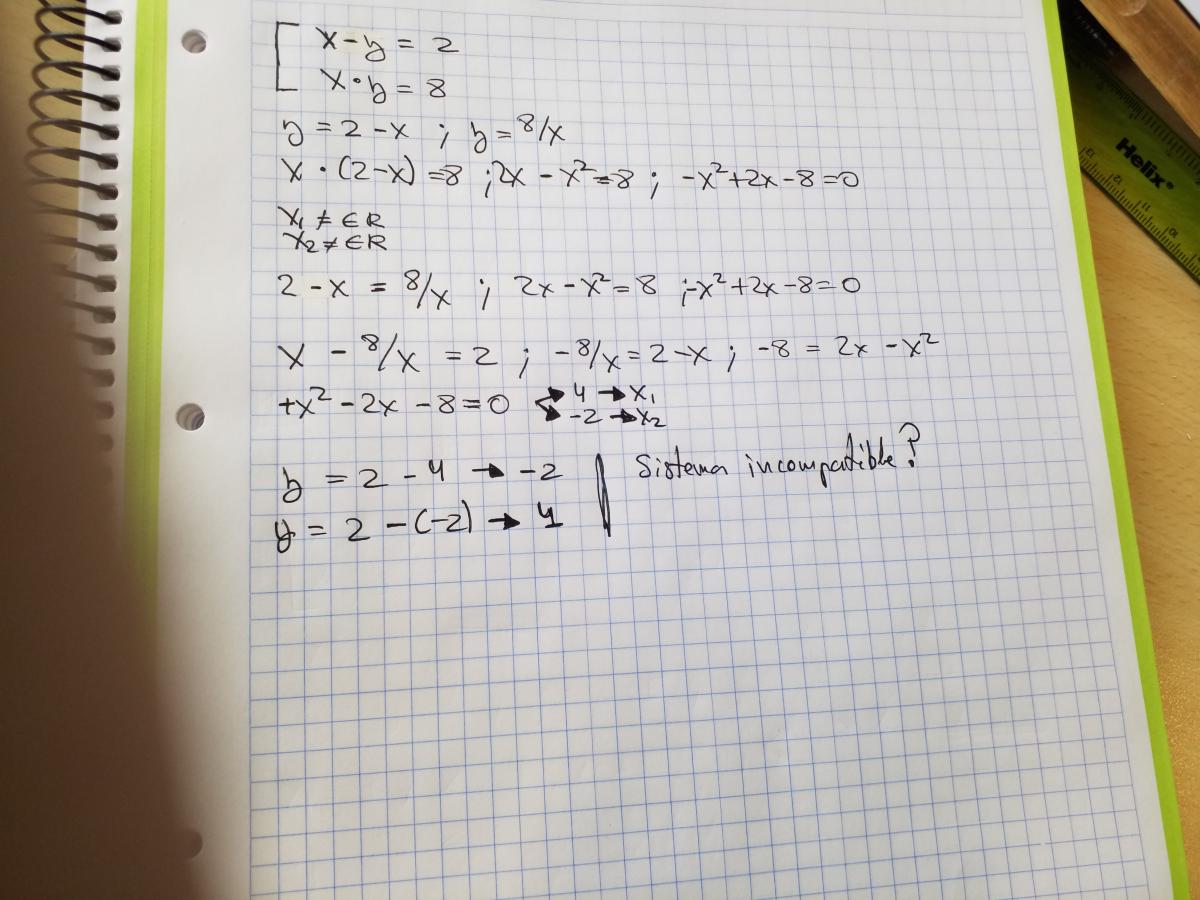 x - y = 2
x · y = 8
y = 2 - x ; y = 8/x
x · (2-x) = 8 ; 2x - x² = 8 ; -x² + 2x - 8 = 0
x₁ ≠ ∈ R
x₂ ≠ ∈ R
2 - x = 8/x ; 2x - x² = 8 ; -x² + 2x - 8 = 0
x - 8/x = 2 ; -8/x = 2 - x ; -8 = 2x - x²
+x² - 2x - 8 = 0 → 4 → x₁
→ -2 → x₂
y = 2 - 4 → -2 | Sistema incompatible?
y = 2 - (-2) → 4
Helix